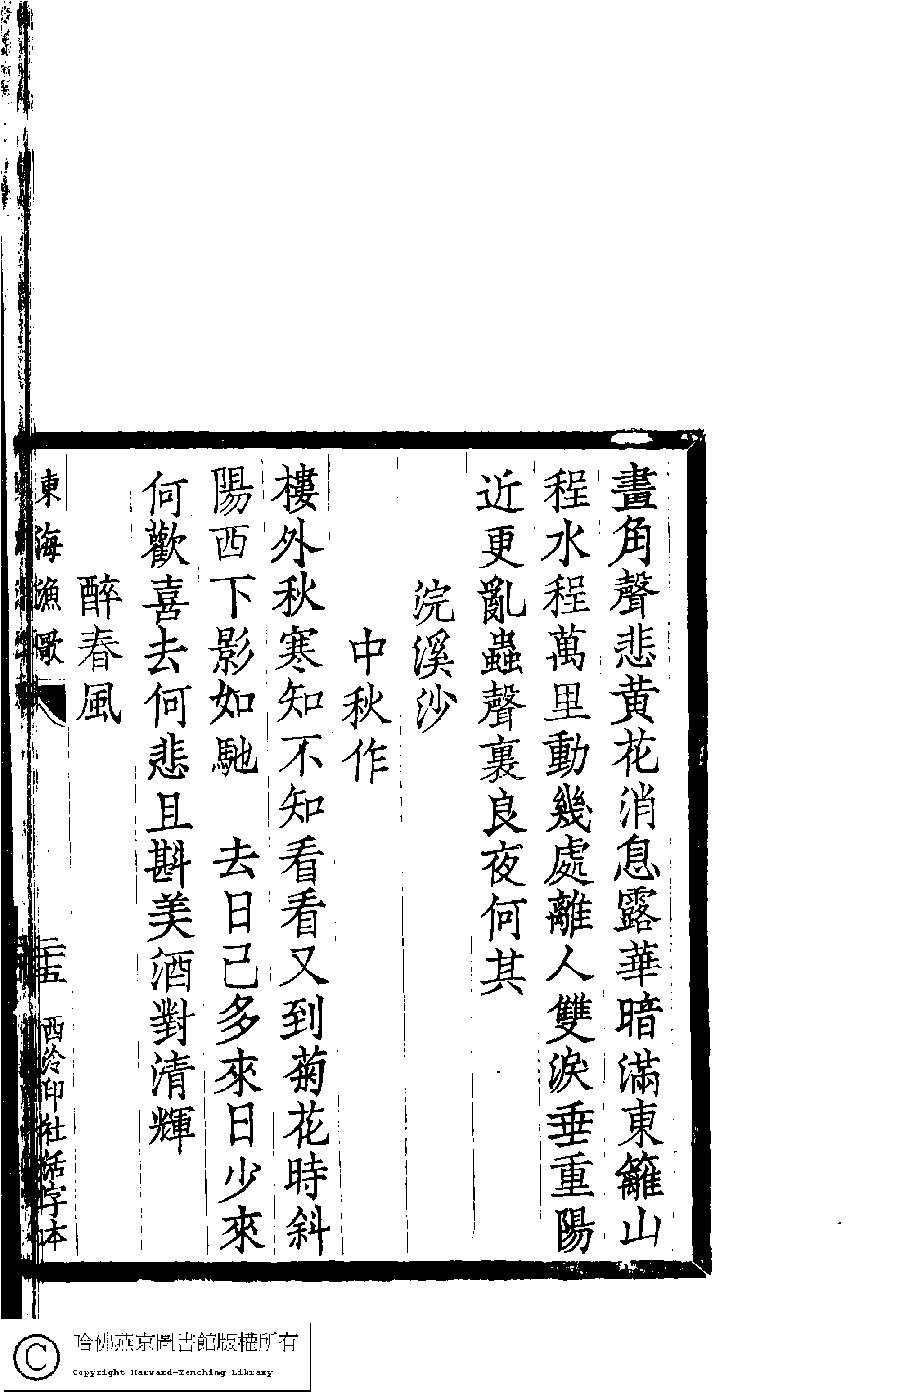 畫角聲悲黃花消息露華暗滿東籬山
程水程萬里動幾處離人雙淚垂重陽
近更亂蟲聲裏良夜何其
浣溪沙
中秋作
樓外秋寒知不知看看又到菊花時斜
陽西下影如馳　去日已多來日少來
何歡喜去何悲且斟美酒對清輝
醉春風
東海漁歌
二十五
西泠印社活字本
哈佛燕京圖書館版權所有
Copyright Harvard-Yenching Library